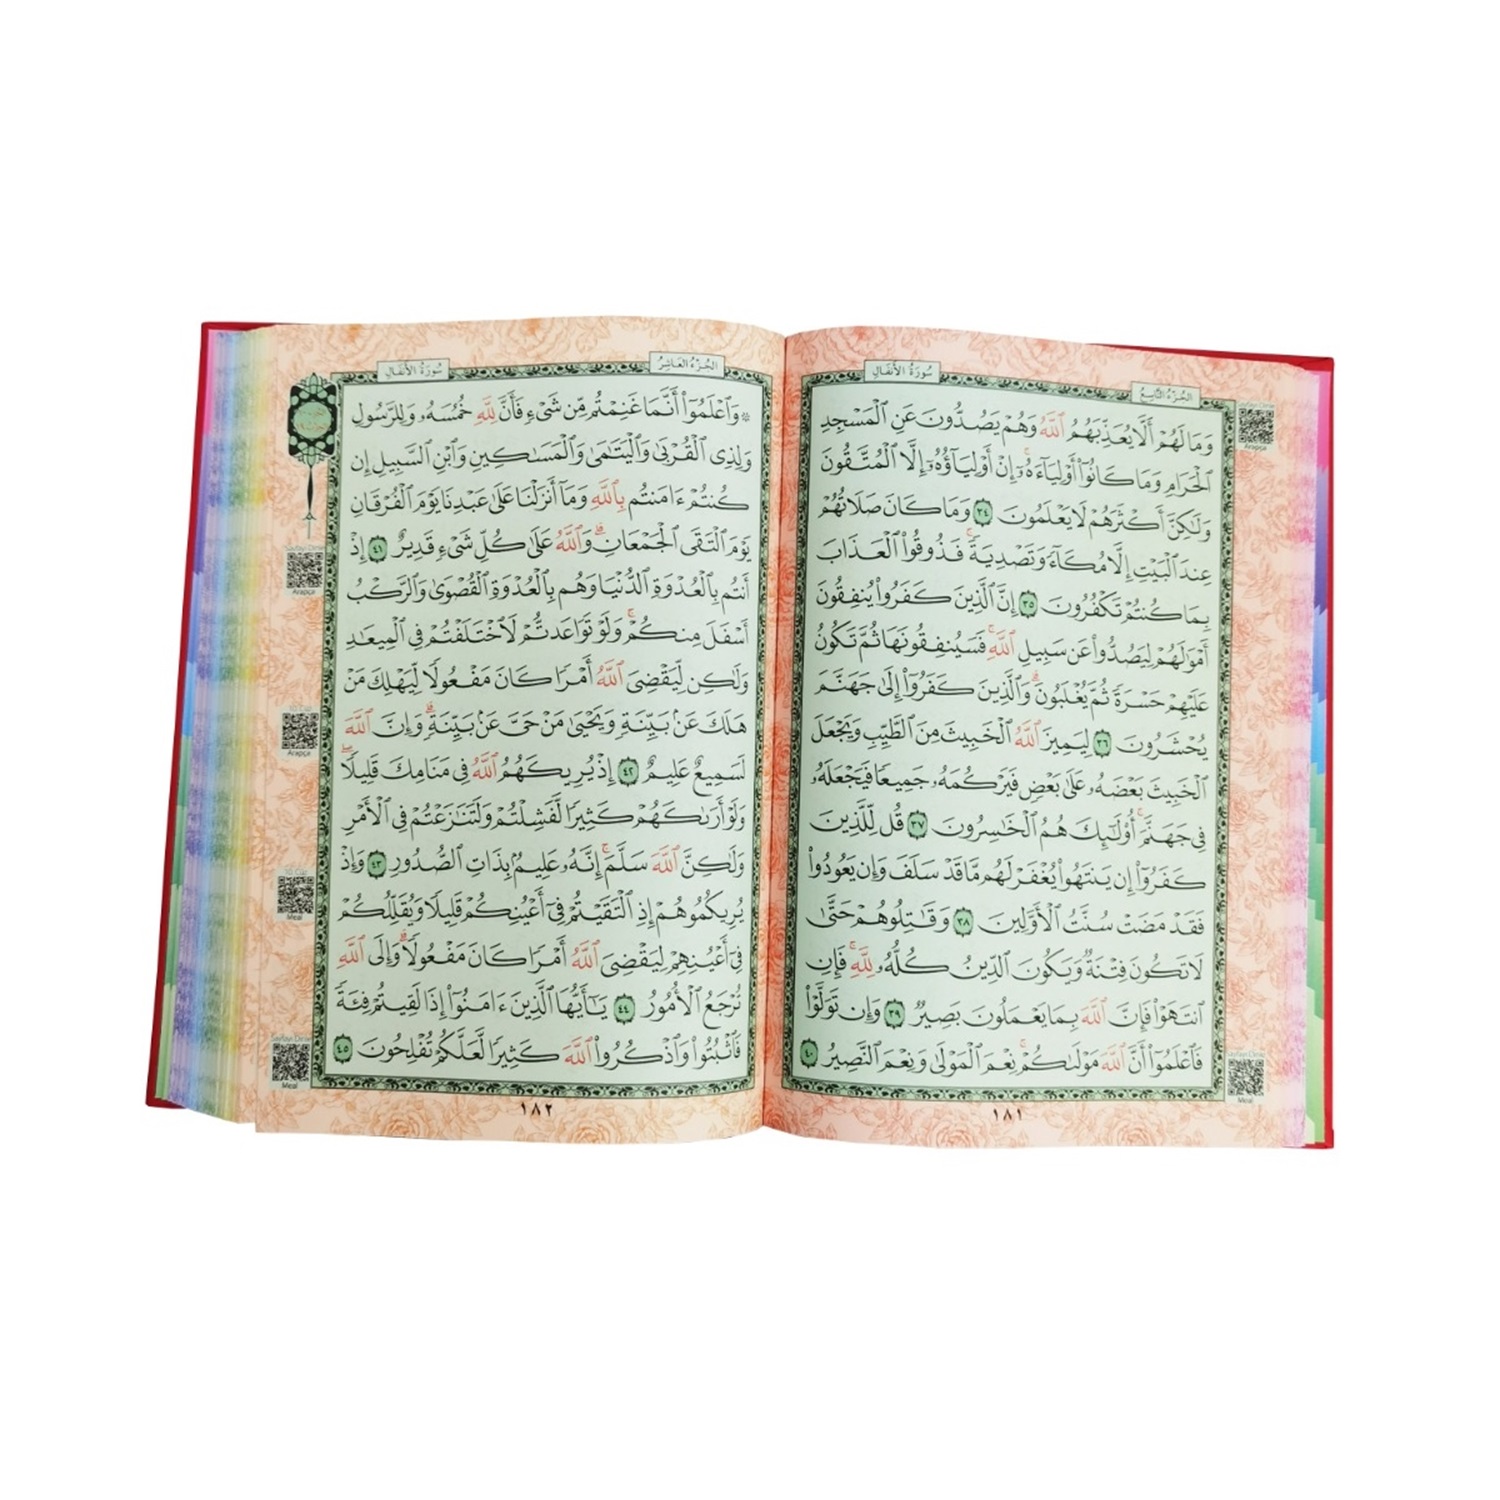 سُورَةُ الأَنفَالِ
الجُزْءُ التَّاسِعُ
وَمَا لَهُمْ أَلَّا يُعَذِّبَهُمُ ٱللَّهُ وَهُمْ يَصُدُّونَ عَنِ ٱلْمَسْجِدِ
ٱلْحَرَامِ وَمَا كَانُوٓا۟ أَوْلِيَآءَهُۥٓ ۚ إِنْ أَوْلِيَآؤُهُۥٓ إِلَّا ٱلْمُتَّقُونَ
وَلَٰكِنَّ أَكْثَرَهُمْ لَا يَعْلَمُونَ ٣٤ وَمَا كَانَ صَلَاتُهُمْ
عِندَ ٱلْبَيْتِ إِلَّا مُكَآءً وَتَصْدِيَةً ۚ فَذُوقُوا۟ ٱلْعَذَابَ
بِمَا كُنتُمْ تَكْفُرُونَ ٣٥ إِنَّ ٱلَّذِينَ كَفَرُوا۟ يُنفِقُونَ
أَمْوَٰلَهُمْ لِيَصُدُّوا۟ عَن سَبِيلِ ٱللَّهِ ۚ فَسَيُنفِقُونَهَا ثُمَّ تَكُونُ
عَلَيْهِمْ حَسْرَةً ثُمَّ يُغْلَبُونَ ۗ وَٱلَّذِينَ كَفَرُوٓا۟ إِلَىٰ جَهَنَّمَ
يُحْشَرُونَ ٣٦ لِيَمِيزَ ٱللَّهُ ٱلْخَبِيثَ مِنَ ٱلطَّيِّبِ وَيَجْعَلَ
ٱلْخَبِيثَ بَعْضَهُۥ عَلَىٰ بَعْضٍ فَيَرْكُمَهُۥ جَمِيعًا فَيَجْعَلَهُۥ
فِى جَهَنَّمَ ۚ أُو۟لَٰٓئِكَ هُمُ ٱلْخَٰسِرُونَ ٣٧ قُل لِّلَّذِينَ
كَفَرُوٓا۟ إِن يَنتَهُوا۟ يُغْفَرْ لَهُم مَّا قَدْ سَلَفَ وَإِن يَعُودُوا۟
فَقَدْ مَضَتْ سُنَّتُ ٱلْأَوَّلِينَ ٣٨ وَقَٰتِلُوهُمْ حَتَّىٰ
لَا تَكُونَ فِتْنَةٌ وَيَكُونَ ٱلدِّينُ كُلُّهُۥ لِلَّهِ ۚ فَإِنِ
ٱنتَهَوْا۟ فَإِنَّ ٱللَّهَ بِمَا يَعْمَلُونَ بَصِيرٌ ٣٩ وَإِن تَوَلَّوْا۟
فَٱعْلَمُوٓا۟ أَنَّ ٱللَّهَ مَوْلَىٰكُمْ ۚ نِعْمَ ٱلْمَوْلَىٰ وَنِعْمَ ٱلنَّصِيرُ ٤٠
١٨١
Arapça
Meal
الجُزْءُ العَاشِرُ
سُورَةُ الأَنفَالِ
۞ وَٱعْلَمُوٓا۟ أَنَّمَا غَنِمْتُم مِّن شَىْءٍ فَأَنَّ لِلَّهِ خُمُسَهُۥ وَلِلرَّسُولِ
وَلِذِى ٱلْقُرْبَىٰ وَٱلْيَتَٰمَىٰ وَٱلْمَسَٰكِينِ وَٱبْنِ ٱلسَّبِيلِ إِن
كُنتُمْ ءَامَنتُم بِٱللَّهِ وَمَآ أَنزَلْنَا عَلَىٰ عَبْدِنَا يَوْمَ ٱلْفُرْقَانِ
يَوْمَ ٱلْتَقَى ٱلْجَمْعَانِ ۗ وَٱللَّهُ عَلَىٰ كُلِّ شَىْءٍ قَدِيرٌ ٤١ إِذْ
أَنتُم بِٱلْعُدْوَةِ ٱلدُّنْيَا وَهُم بِٱلْعُدْوَةِ ٱلْقُصْوَىٰ وَٱلرَّكْبُ
أَسْفَلَ مِنكُمْ ۚ وَلَوْ تَوَاعَدتُّمْ لَٱخْتَلَفْتُمْ فِى ٱلْمِيعَٰدِ
وَلَٰكِن لِّيَقْضِىَ ٱللَّهُ أَمْرًا كَانَ مَفْعُولًا لِّيَهْلِكَ مَنْ
هَلَكَ عَنۢ بَيِّنَةٍ وَيَحْيَىٰ مَنْ حَىَّ عَنۢ بَيِّنَةٍ ۗ وَإِنَّ ٱللَّهَ
لَسَمِيعٌ عَلِيمٌ ٤٢ إِذْ يُرِيكَهُمُ ٱللَّهُ فِى مَنَامِكَ قَلِيلًا ۖ
وَلَوْ أَرَىٰكَهُمْ كَثِيرًا لَّفَشِلْتُمْ وَلَتَنَٰزَعْتُمْ فِى ٱلْأَمْرِ
وَلَٰكِنَّ ٱللَّهَ سَلَّمَ ۗ إِنَّهُۥ عَلِيمٌۢ بِذَاتِ ٱلصُّدُورِ ٤٣ وَإِذْ
يُرِيكُمُوهُمْ إِذِ ٱلْتَقَيْتُمْ فِىٓ أَعْيُنِكُمْ قَلِيلًا وَيُقَلِّلُكُمْ
فِىٓ أَعْيُنِهِمْ لِيَقْضِىَ ٱللَّهُ أَمْرًا كَانَ مَفْعُولًا ۗ وَإِلَى ٱللَّهِ
تُرْجَعُ ٱلْأُمُورُ ٤٤ يَٰٓأَيُّهَا ٱلَّذِينَ ءَامَنُوٓا۟ إِذَا لَقِيتُمْ فِئَةً
فَٱثْبُتُوا۟ وَٱذْكُرُوا۟ ٱللَّهَ كَثِيرًا لَّعَلَّكُمْ تُفْلِحُونَ ٤٥
١٨٢
Arapça
Arapça
Meal
Meal